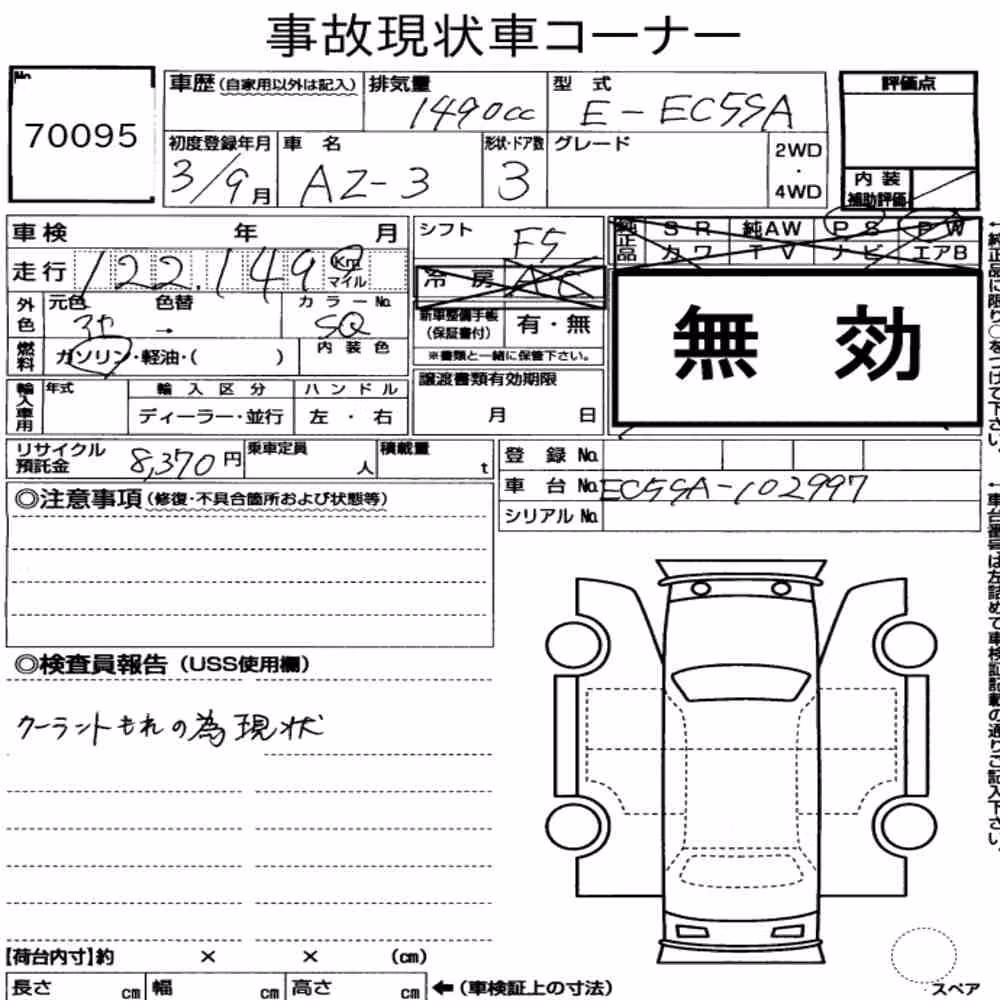 事故現状車コーナー
No. 70095
車歴 (自家用以外は記入) 排気量 1490cc 型式 E-EC5SA
評価点
初度登録年月 3/9月 車名 AZ-3 形状・ドア数 3 グレード 2WD・4WD
内装補助評価
車検 年 月
走行 122,149 Km マイル
外色 元色 色替 → カラーNo. SQ
燃料 ガソリン・軽油・( ) 内装色
輸入車用 年式 輸入区分 ハンドル
ディーラー・並行 左・右
シフト F5
冷房 AC
新車整備手帳 (保証書付) 有・無
※書類と一緒に保管下さい。
譲渡書類有効期限
月 日
純正品 SR 純AW PS PW
カワ TV ナビ エアB
無効
←純正品に限り○をつけて下さい。
リサイクル預託金 8,370円 乗車定員 人 積載量 t
登録No.
車台No. EC5SA-102997
シリアルNo.
←車台番号は左詰めで車検証記載の通りご記入下さい。
◎注意事項 (修復・不具合箇所および状態等)
◎検査員報告 (USS使用欄)
クーラントもれの為現状
【荷台内寸】約 × × (cm)
長さ cm 幅 cm 高さ cm ←(車検証上の寸法)
スペア